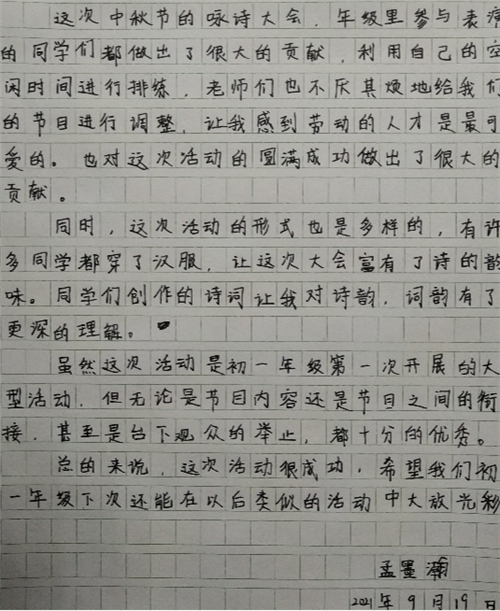 这次中秋节的咏诗大会，年级里参与表演
的同学们都做出了很大的贡献，利用自己的空
闲时间进行排练，老师们也不厌其烦地给我们
的节目进行调整，让我感到劳动的人才是最可
爱的。也对这次活动的圆满成功做出了很大的
贡献。
同时，这次活动的形式也是多样的，有许
多同学都穿了汉服，让这次大会富有了诗的韵
味。同学们创作的诗词让我对诗韵，词韵有了
更深的理解。
虽然这次活动是初一年级第一次开展的大
型活动，但无论是节目内容还是节目之间的衔
接，甚至是台下观众的举止，都十分的优秀。
总的来说，这次活动很成功，希望我们初
一年级下次还能在以后类似的活动中大放光彩
孟墨瀚
2021年9月19日